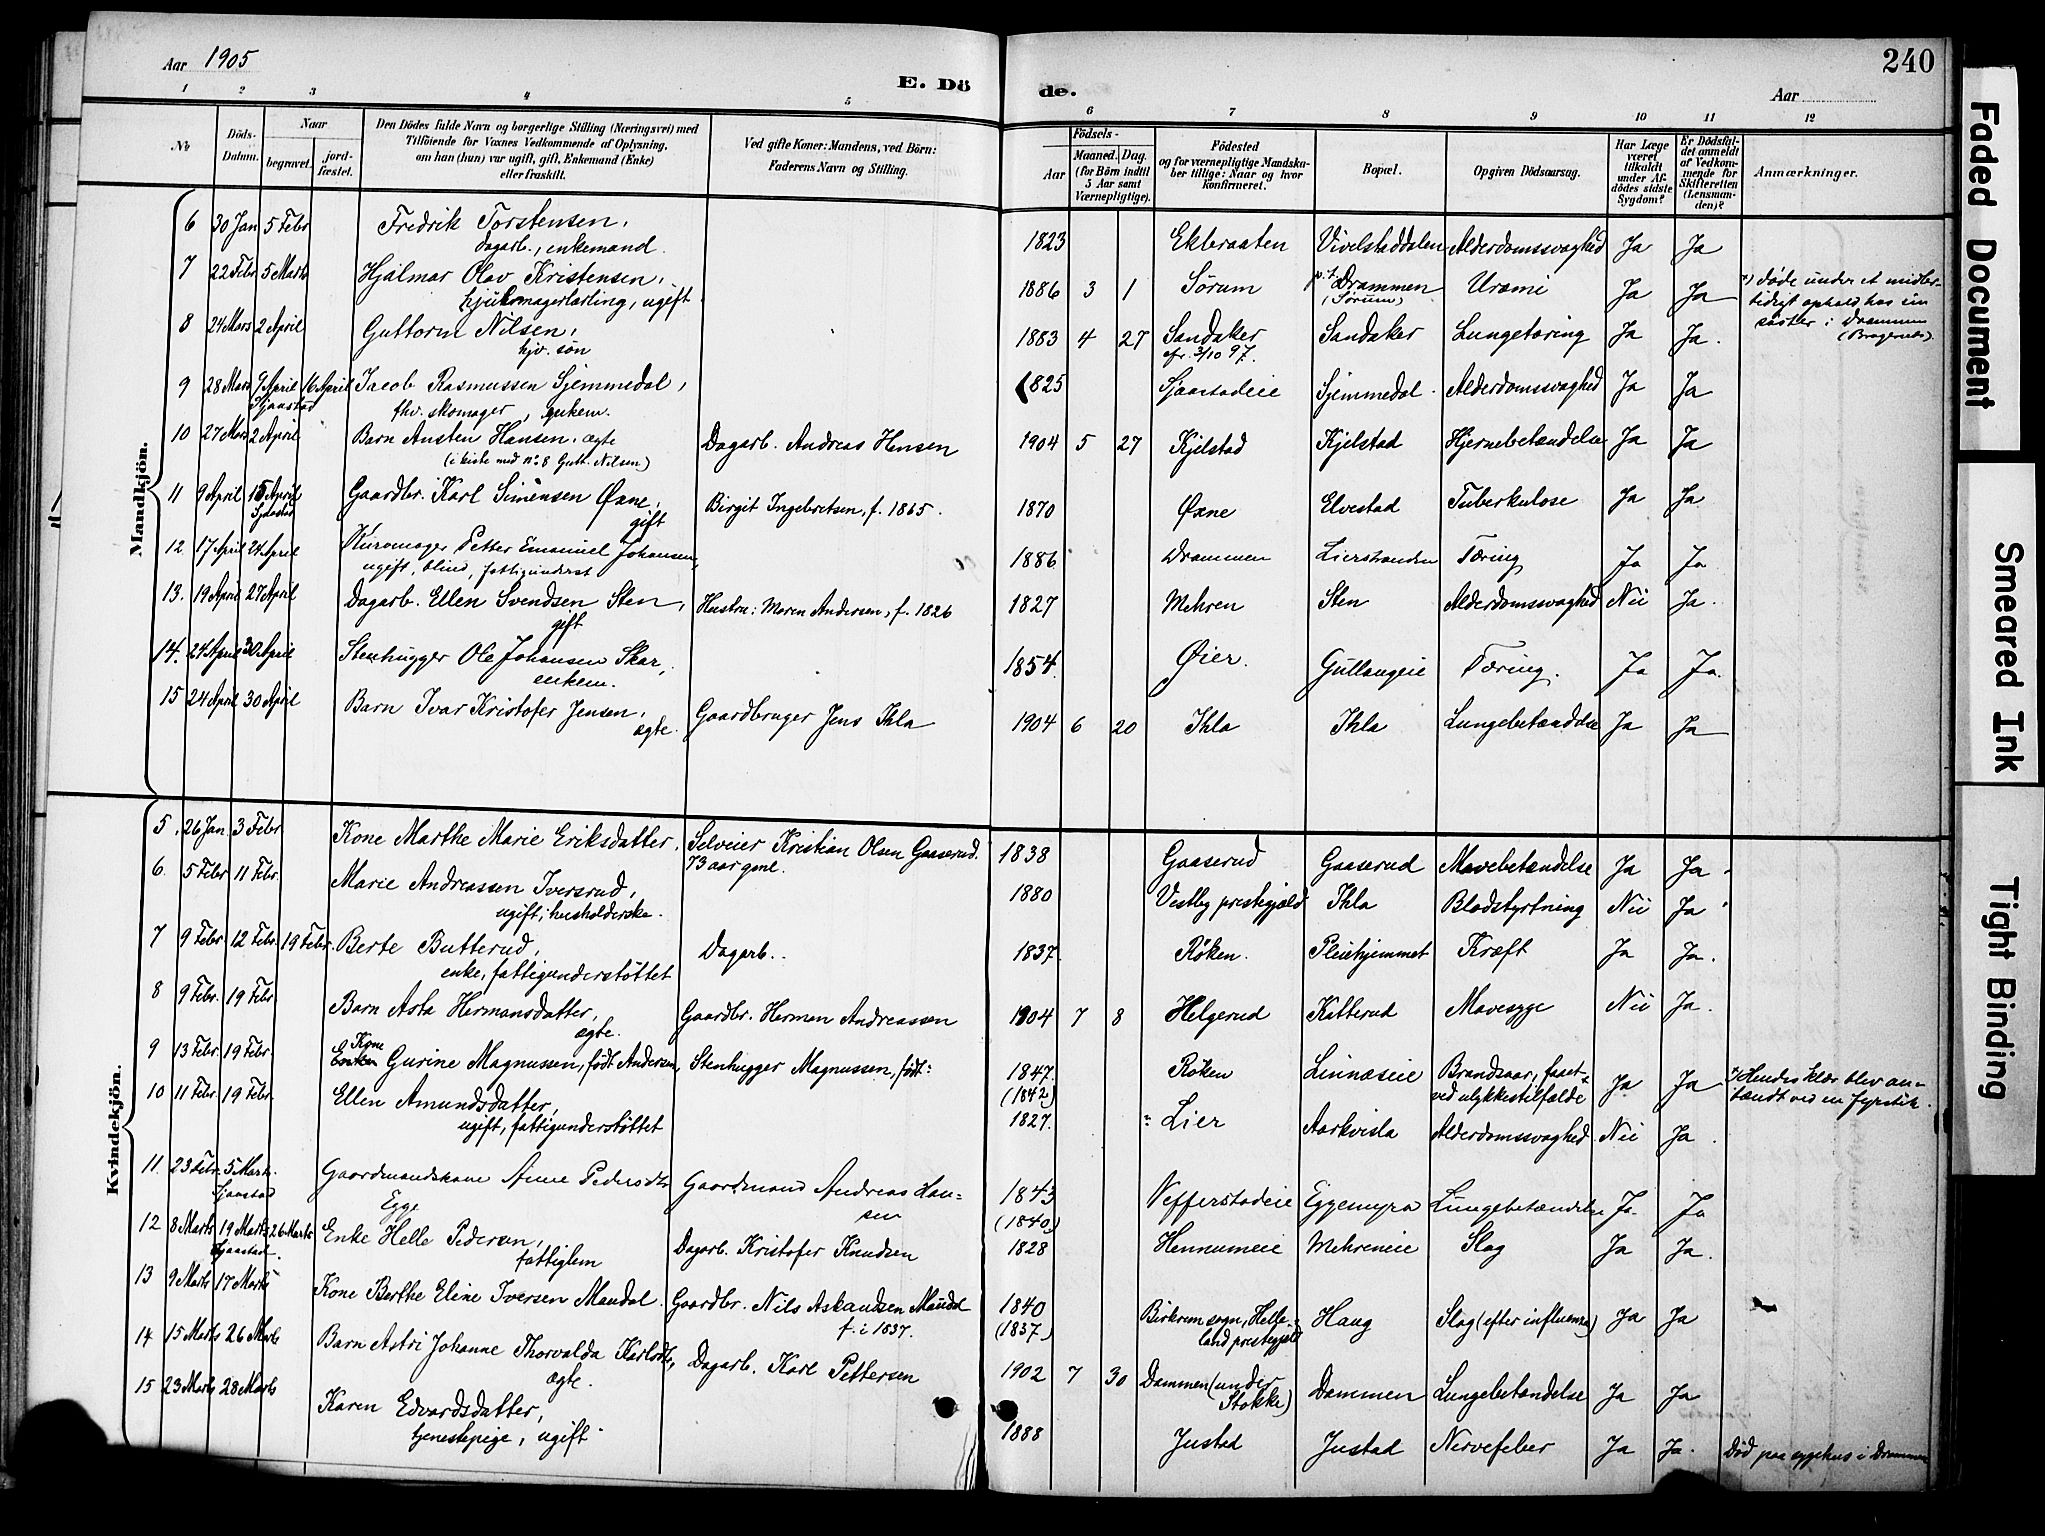 Aar 1905
E. Dö
de.
Aar
240
1 2 3 4 5 6 7 8 9 10 11 12
No
Döds-Datum.
Naar
begravet.
jord-fæstet.
Den Dödes fulde Navn og borgerlige Stilling (Næringsvei) med
Tilföiende for Voxnes Vedkommende af Oplysning,
om han (hun) var ugift, gift, Enkemand (Enke)
eller fraskilt.
Ved gifte Koner: Mandens, ved Börn:
Faderens Navn og Stilling.
Födsels-
Aar
Maaned. Dag.
(for Börn indtil
5 Aar samt
Værnepligtige).
Födested
og for værnepligtige Mandska-
ber tillige: Naar og hvor
konfirmeret.
Bopæl.
Opgiven Dödsaarsag.
Har Læge
været
tilkaldt
under Af-
dödes sidste
Sygdom?
Er Dödsfal-
det anmeldt
af Vedkom-
mende for
Skifteretten
(Lensman-
den)?
Anmærkninger.
Mandkjön.
6 30 Jan 5 Febr Fredrik Torstensen, 1823 Ekbraaten Vivelstaddalen Alderdomssvaghed Ja Ja
dagarb., enkemand.
7 22 Febr 5 Marts Hjalmar Olav Kristensen, 1886 3 1 Sørum p.t. Drammen Uræmi Ja Ja døde under et midler-
hjulmagerlærling, ugift (Sørum) tidigt ophold hos sin
søster i Drammen
(Bragernes).
8 24 Mars 2 April Guttorm Nilsen, 1883 4 27 Sandaker Sandaker Lungetæring Ja Ja.
hjv. søn cfr. 3/10 97.
9 28 Mars 9 April 16 April Jacob Rasmussen Gjemmedal, 1825 Sjaastadeie Gjemmedal Alderdomssvaghed Ja Ja
Sjaastad fhv. skomager, enkem.
10 27 Mars 2 April Barn Austen Hansen, ægte Dagarb. Andreas Hansen 1904 5 27 Kjelstad Kjelstad Hjernebetændelse Ja Ja
(i kiste med no 8 Gutt. Nilsen)
11 9 April 15 April Gaardbr. Karl Simensen Øxne, Birgit Ingebretsen, f. 1865. 1870 Øxne Elvestad Tuberkulose Ja Ja
Sjaastad gift
12 17 April 24 April Kurvmager Petter Emanuel Johansen, 1886 Drammen Lierstranden Tæring Ja Ja
ugift, blind, fattigunderst
13. 19 April 27 April Dagarb. Ellen Svendsen Sten, Hustru: Maren Andersen, f. 1826 1827 Mehren Sten Alderdomssvaghed Nei Ja.
gift
14. 24 April 30 April Stenhugger Ole Johansen Skar, 1854. Øier. Gullaugeie Tæring. Ja Ja.
enkem.
15 24 April 30 April Barn Ivar Kristofer Jensen, Gaardbruger Jens Ihla 1904 6 20 Ihla Ihla Lungebetændelse Ja Ja
ægte.
Kvindekjön.
5. 26 Jan 3 Febr Kone Marthe Marie Eriksdatter, Selveier Kristian Olsen Gaaserud. 1838 Gaaserud Gaaserud Mavebetændelse Ja Ja.
73 aar gml.
6. 5 Febr 11 Febr. Marie Andreassen Iversrud, 1880 Vestby prestegjæld Ihla Blodstyrtning Nei Ja
ugift, husholderske.
7 9 Febr. 12 Febr. 19 Febr. Berte Butterud, Dagarb. 1837. Røken. Pleiehjemmet Kræft Ja Ja.
enke, fattigunderstøttet
8 9 Febr. 19 Febr. Barn Asta Hermansdatter, Gaardbr. Herman Andreassen 1904 7 8 Helgerud Katterud Mavesyge Nei Ja.
ægte.
9 13 Febr. 19 Febr. Enken Kone Gurine Magnussen, født Andersen, Stenhugger Magnussen, født: 1847. Røken Linnæseie Brandsaar, faaet Ja Ja Hendes klær blev an-
(1842) ved ulykkestilfælde tændt ved en fyrstik.
10 11 Febr. 19 Febr. Ellen Amundsdatter, 1827. Lier Aarkvisla Alderdomssvaghed Nei Ja.
ugift, fattigunderstøttet
11. 23 Febr. 5 Marts Gaardmandskone Anne Pedersdtr Gaardmand Andreas Han- 1843 Nefferstadeie Eggemyra Lungebetændelse Ja Ja
Sjaastad Egge sen (1840)
12 8 Marts 19 Marts 26 Marts Enke Helle Pedersen, Dagarb. Kristofer Knudsen 1828 Hennumeie Mehreneie Slag Ja Ja.
Sjaastad. fattiglem
13 9 Marts 17 Marts Kone Berthe Eline Iversen Maudal. Gaardbr. Nils Askandsen Maudal 1840 Birkrem sogn, Helle- Haug Slag (efter influenza) Ja Ja
f. i 1837. (1837) land prestegjæld
14 15 Marts 26 Marts Barn Astri Johanne Thorvalda Karlsdtr, Dagarb. Karl Pettersen 1902 7 30 Dammen (under Dammen Lungebetændelse Ja Ja
ægte. Stokke)
15 23 Marts 28 Marts Karen Edvardsdatter, 1888 Justad Justad Nervefeber Ja Ja. Død paa sygehus i Drammen
tjenestepige, ugift
Faded Document
Smeared Ink
Tight Binding